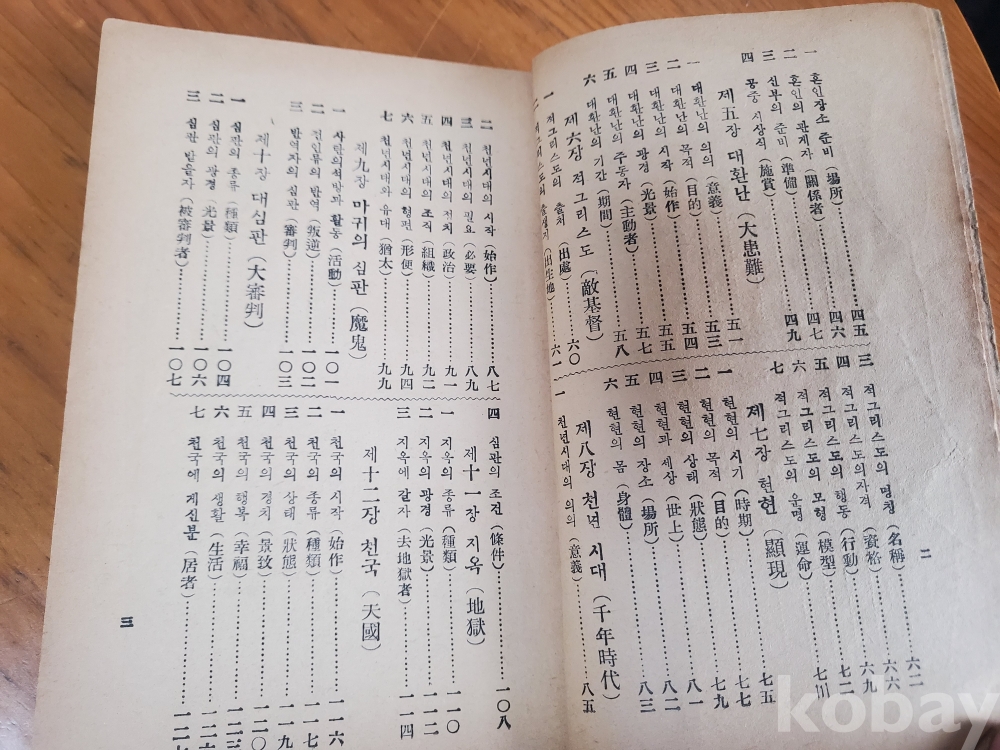 一 혼인장소 준비 (場所)……四五
二 혼인의 관계자 (關係者)……四六
三 신부의 준비 (準備)……四七
四 공중 시상식 (施賞)……四九
제五장 대환난 (大患難)
一 대환난의 의의 (意義)……五一
二 대환난의 목적 (目的)……五三
三 대환난의 시작 (始作)……五四
四 대환난의 광경 (光景)……五五
五 대환난의 주동자 (主動者)……五七
六 대환난의 기간 (期間)……五八
제六장 적그리스도 (敵基督)
一 적그리스도의 출처 (出處)……六〇
二 적그리스도의 출생지 (出生地)……六一
三 적그리스도의 명칭 (名稱)……六二
四 적그리스도의자격 (資格)……六六
五 적그리스도의 행동 (行動)……六九
六 적그리스도의 모형 (模型)……七二
七 적그리스도의 운명 (運命)……七川
제七장 현현 (顯現)
一 현현의 시기 (時期)……七五
二 현현의 목적 (目的)……七七
三 현현의 상태 (狀態)……七九
四 현현과 세상 (世上)……八一
五 현현의 장소 (場所)……
六 현현의 몸 (身體)……八三
제八장 천년 시대 (千年時代)
一 천년시대의 의의 (意義)……八五
二
二 천년시대의 시작 (始作)……八七
三 천년시대의 필요 (必要)……八九
四 천년시대의 정치 (政治)……九一
五 천년시대의 조직 (組織)……九二
六 천년시대의 형편 (形便)……九四
七 천년시대와 유대 (猶太)……九九
제九장 마귀의 심판 (魔鬼)
一 사탄의석방과 활동 (活動)……一〇一
二 전인류의 반역 (叛道)……一〇二
三 반역자의 심판 (審判)……一〇三
제十장 대심판 (大審判)
一 심판의 종류 (種類)……一〇四
二 심판의 광경 (光景)……一〇六
三 심판 받을자 (被審判者)……一〇七
四 심판의 조건 (條件)……一〇八
제十一장 지옥 (地獄)
一 지옥의 종류 (種類)……一一〇
二 지옥의 광경 (光景)……
三 지옥에 갈자 (去地獄者)……一一四
제十二장 천국 (天國)
一 천국의 시작 (始作)……一一六
二 천국의 종류 (種類)……
三 천국의 상태 (狀態)……一一九
四 천국의 경치 (景致)……
五 천국의 행복 (幸福)……
六 천국의 생활 (生活)……
七 천국에 계신분 (居者)……
三
kobay